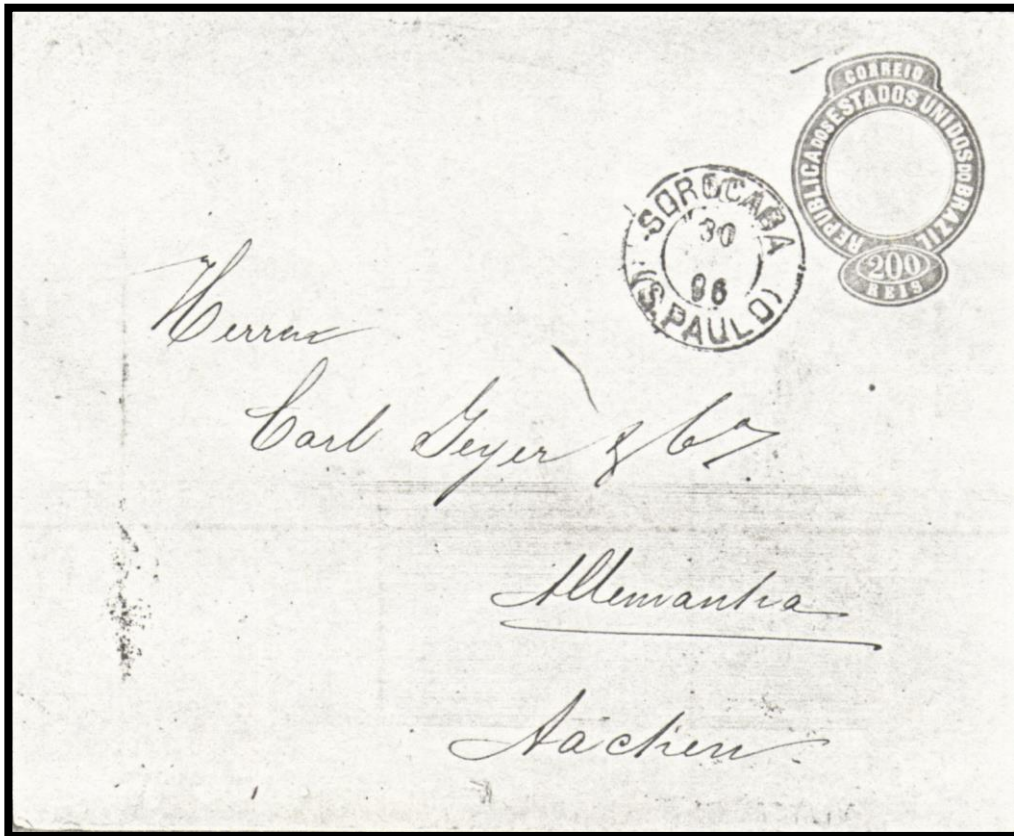 CORREIO
REPUBLICA DOS ESTADOS UNIDOS DO BRAZIL
200
REIS
SOROCABA
30
96
(S. PAULO)
Herren
Carl Geyer & Co
Allemanha
Aachen.